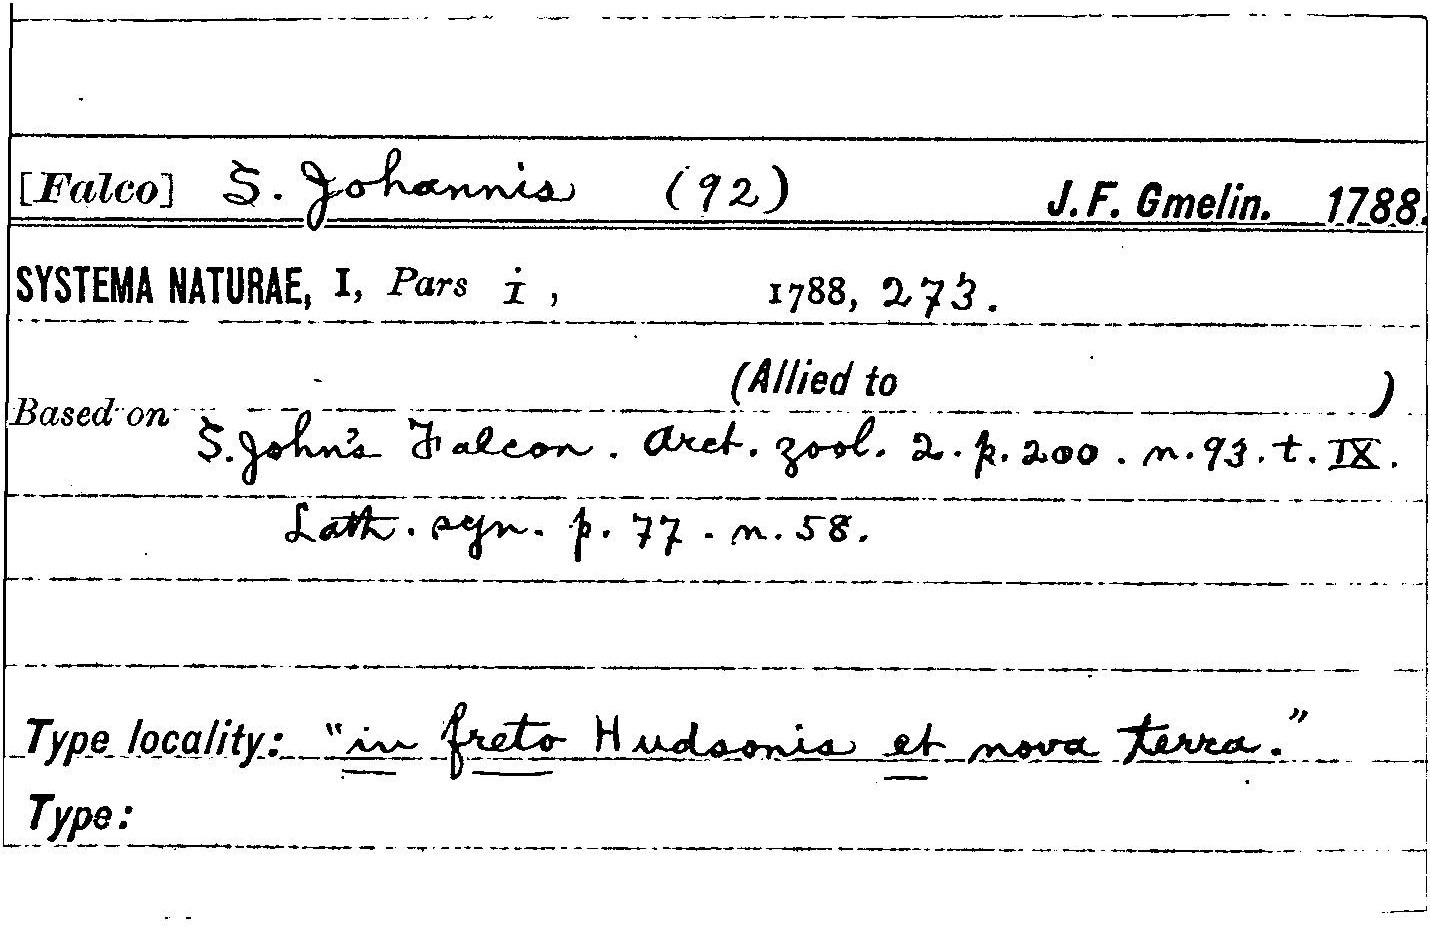 [Falco] S. Johannis (92) J. F. Gmelin. 1788.
SYSTEMA NATURAE, I, Pars i, 1788, 273.
(Allied to )
Based on S. John's Falcon. Arct. zool. 2. p. 200. n. 93. t. IX.
Lath. syn. p. 77. n. 58.
Type locality: "in freto Hudsonis et nova terra."
Type: